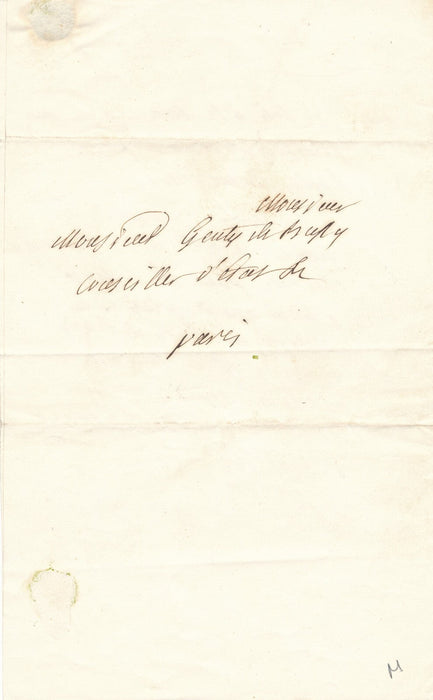 Monsieur
Monsieur Genty de Bussy
conseiller d'État &c
paris
M